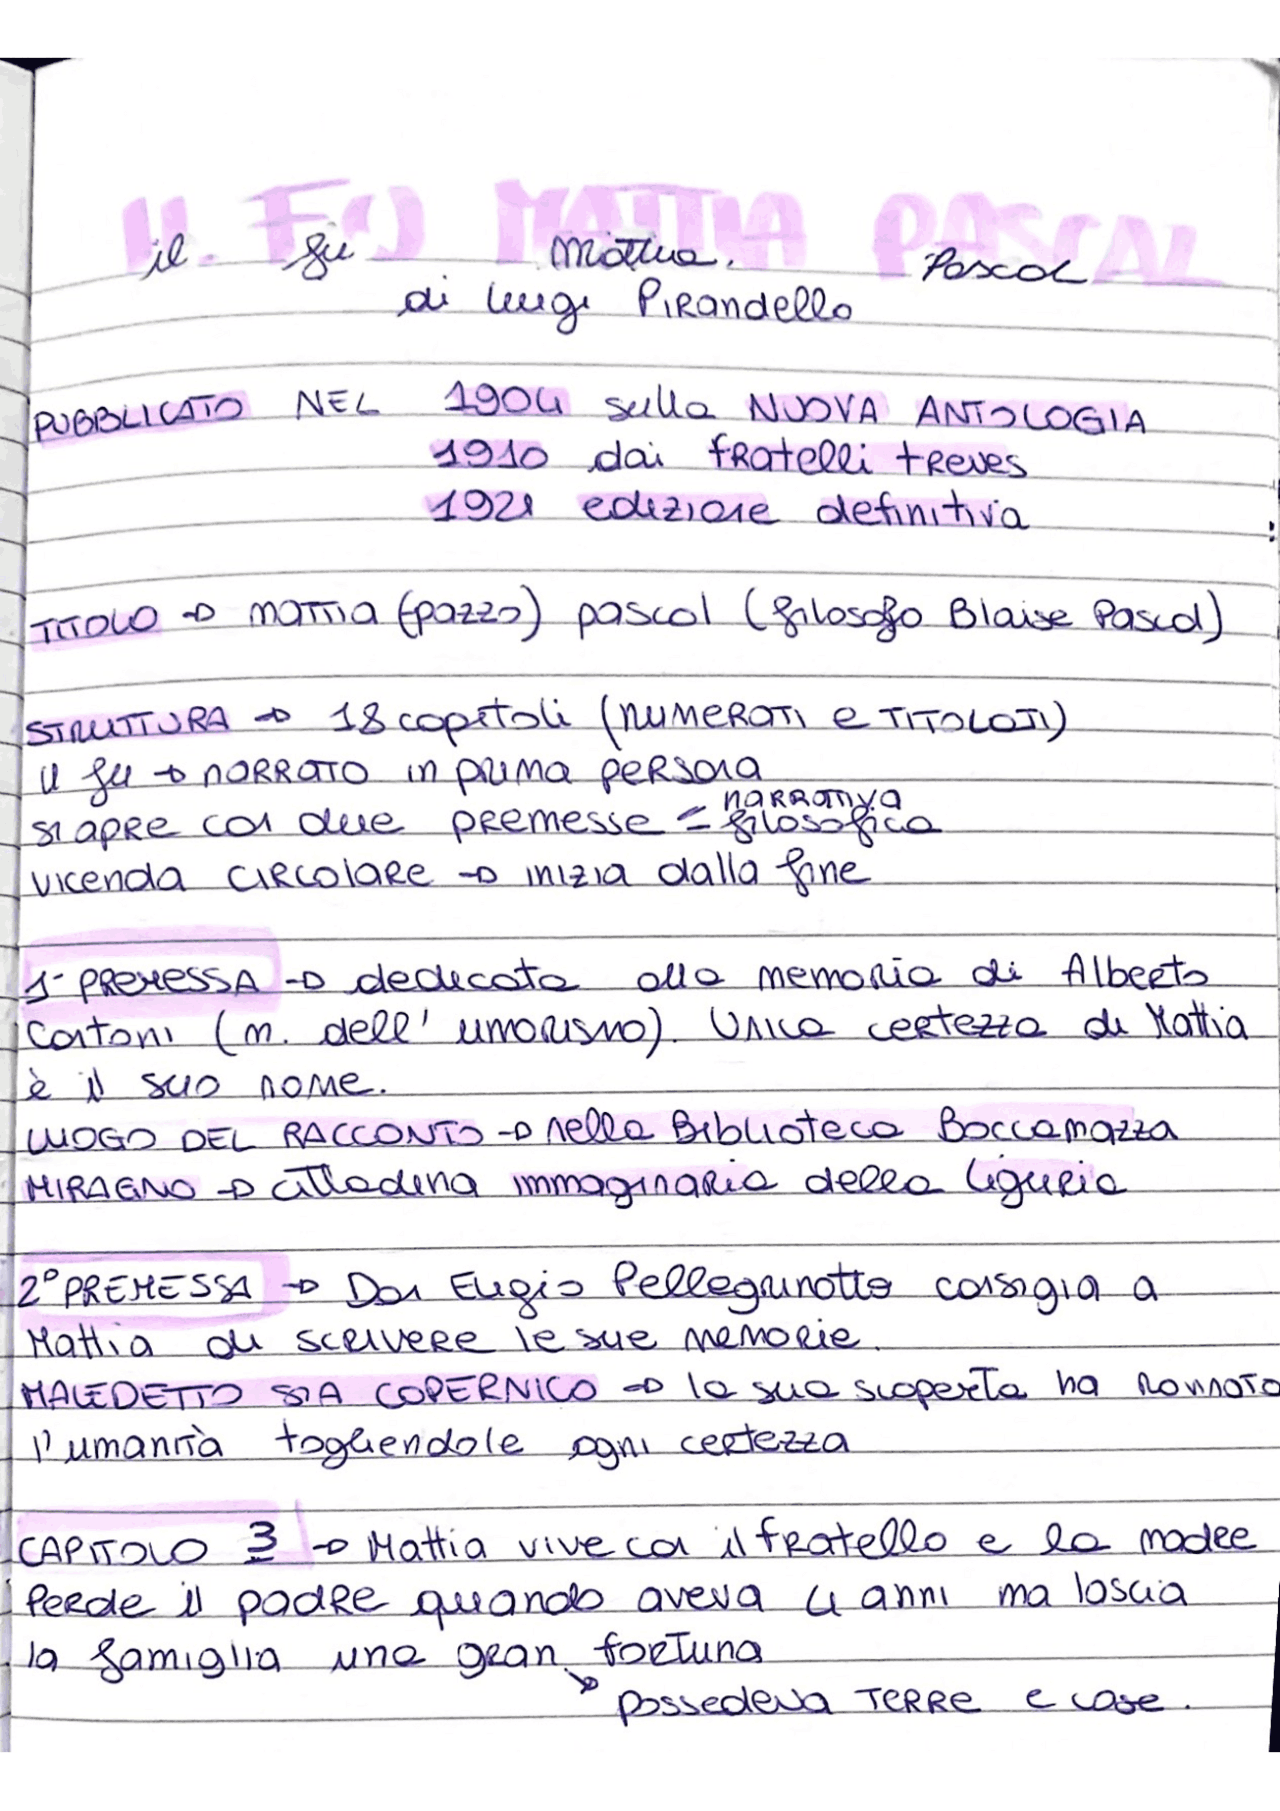 IL FU MATTIA PASCAL
il fu Mattia Pascal
di Luigi Pirandello
PUBBLICATO NEL 1904 sulla NUOVA ANTOLOGIA
1910 dai fratelli treves
1921 edizione definitiva
TITOLO → mattia (pazzo) pascal (filosofo Blaise Pascal)
STRUTTURA → 18 capitoli (NUMERATI e TITOLATI)
Il fu → NARRATO in prima persona
si apre con due premesse = narrativa
filosofica
vicenda circolare → inizia dalla fine
1ª PREMESSA → dedicata alla memoria di Alberto
Cantoni (m. dell' umorismo). Unica certezza di Mattia
è il suo nome.
LUOGO DEL RACCONTO → nella Biblioteca Boccamazza
MIRAGNO → cittadina immaginaria della Liguria
2° PREMESSA → Don Eligio Pellegrinotto consiglia a
Mattia di scrivere le sue memorie.
MALEDETTO SIA COPERNICO → la sua scoperta ha rovinato
l'umanità togliendole ogni certezza
CAPITOLO 3 → Mattia vive con il fratello e la madre
Perde il padre quando aveva 4 anni ma lascia
la famiglia una gran fortuna
→ possedeva terre e case.